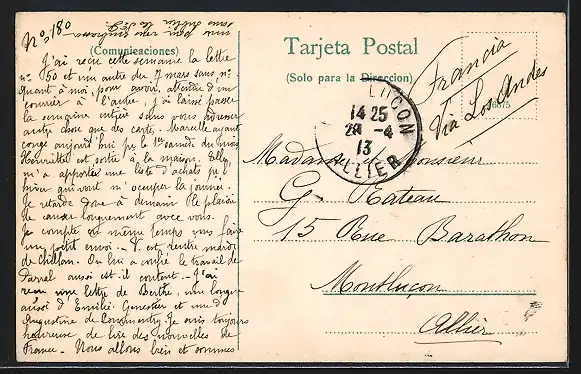 Nº 180
(Comunicaciones)
Tarjeta Postal
(Solo para la Direccion)
Francia
Via Los Andes
LUÇON
14 25
28 -4
13
ALLIER
J'ai reçu cette semaine la lettre
nº 50 et un autre du 7 mars sans nº
Quant à moi, pour avoir attendre d'un
courrier à l'autre, j'ai laissé passer
la semaine entière sans vous adresser
autre chose que des cartes. Marcelle ayant
congé aujourd'hui pr le 1er samedi du mois
Henriette est sortie à la maison. Elle
m'a apporté une liste d'achats pr
qui vont m'occuper la journée.
Je retarde donc à demain le plaisir
de causer longuement avec vous.
Je compte en même temps vous faire
un petit envoi. - V. est rentré mardi
de Chillan. On lui a confié le travail de
aussi est-il content. - J'ai
reçu une lettre de Berthe, une longue
aussi d'Emilie Genestier et une d'
Augustine de Commentry. Je suis toujours
heureuse de lire des nouvelles de
France. - Nous allons bien et sommes
Madame et Monsieur
G. Rateau
15 Rue Barathon
Montluçon
Allier